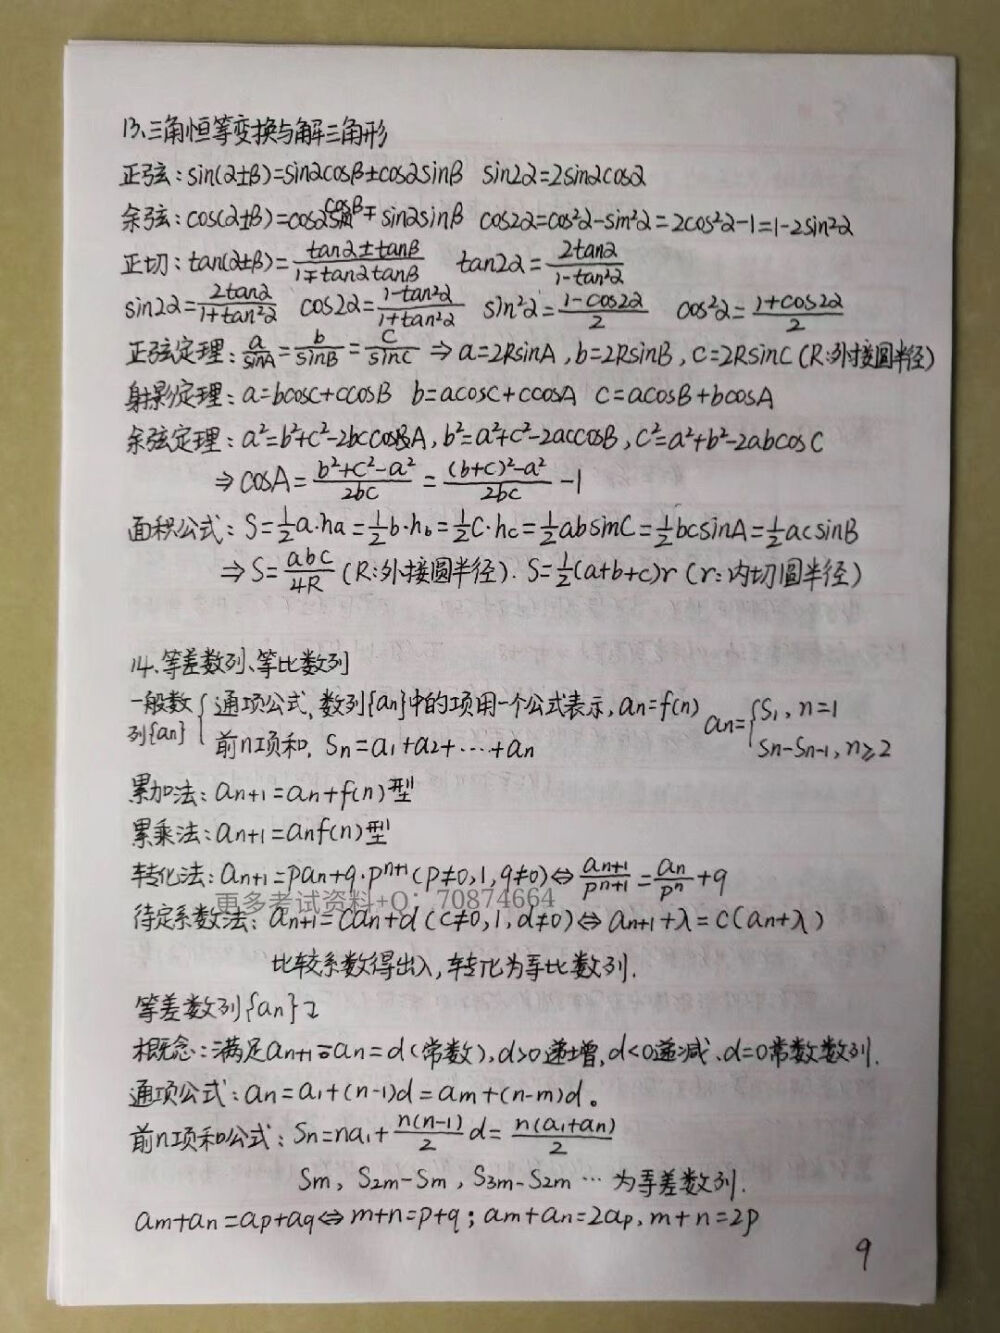 13、三角恒等变换与解三角形
正弦：sin(α±β)=sinαcosβ±cosαsinβ sin2α=2sinαcosα
余弦：cos(α±β)=cosαcosβ∓sinαsinβ cos2α=cos²α-sin²α=2cos²α-1=1-2sin²α
正切：tan(α±β)=(tanα±tanβ)/(1∓tanαtanβ) tan2α=2tanα/(1-tan²α)
sin2α=2tanα/(1+tan²α) cos2α=(1-tan²α)/(1+tan²α) sin²α=(1-cos2α)/2 cos²α=(1+cos2α)/2
正弦定理：a/sinA=b/sinB=c/sinC ⇒ a=2RsinA，b=2RsinB，c=2RsinC（R:外接圆半径）
射影定理：a=bcosC+ccosB b=acosC+ccosA c=acosB+bcosA
余弦定理：a²=b²+c²-2bccosA，b²=a²+c²-2accosB，c²=a²+b²-2abcosC
⇒cosA=(b²+c²-a²)/2bc=((b+c)²-a²)/2bc-1
面积公式：S=½a·ha=½b·hb=½c·hc=½absinC=½bcsinA=½acsinB
⇒S=abc/4R（R:外接圆半径）．S=½(a+b+c)r（r：内切圆半径）
14、等差数列、等比数列
一般数列{an} { 通项公式，数列{an}中的项用一个公式表示，an=f(n) an={S1，n=1
前n项和，Sn=a1+a2+…+an Sn-Sn-1，n≥2
累加法：an+1=an+f(n)型
累乘法：an+1=anf(n)型
转化法：an+1=pan+q·pⁿ⁺¹（p≠0,1,q≠0）⇔an+1/pⁿ⁺¹=an/pⁿ+q
更多考试资料+Q：70874664
待定系数法：an+1=can+d（c≠0,1,d≠0）⇔an+1+λ=c(an+λ)
比较系数得出λ，转化为等比数列．
等差数列{an}
概念：满足an+1-an=d（常数），d>0递增，d<0递减、d=0常数数列．
通项公式：an=a1+(n-1)d=am+(n-m)d。
前n项和公式：Sn=na1+n(n-1)/2 d=n(a1+an)/2
Sm，S2m-Sm，S3m-S2m…为等差数列．
am+an=ap+aq⇔m+n=p+q；am+an=2ap，m+n=2p
9